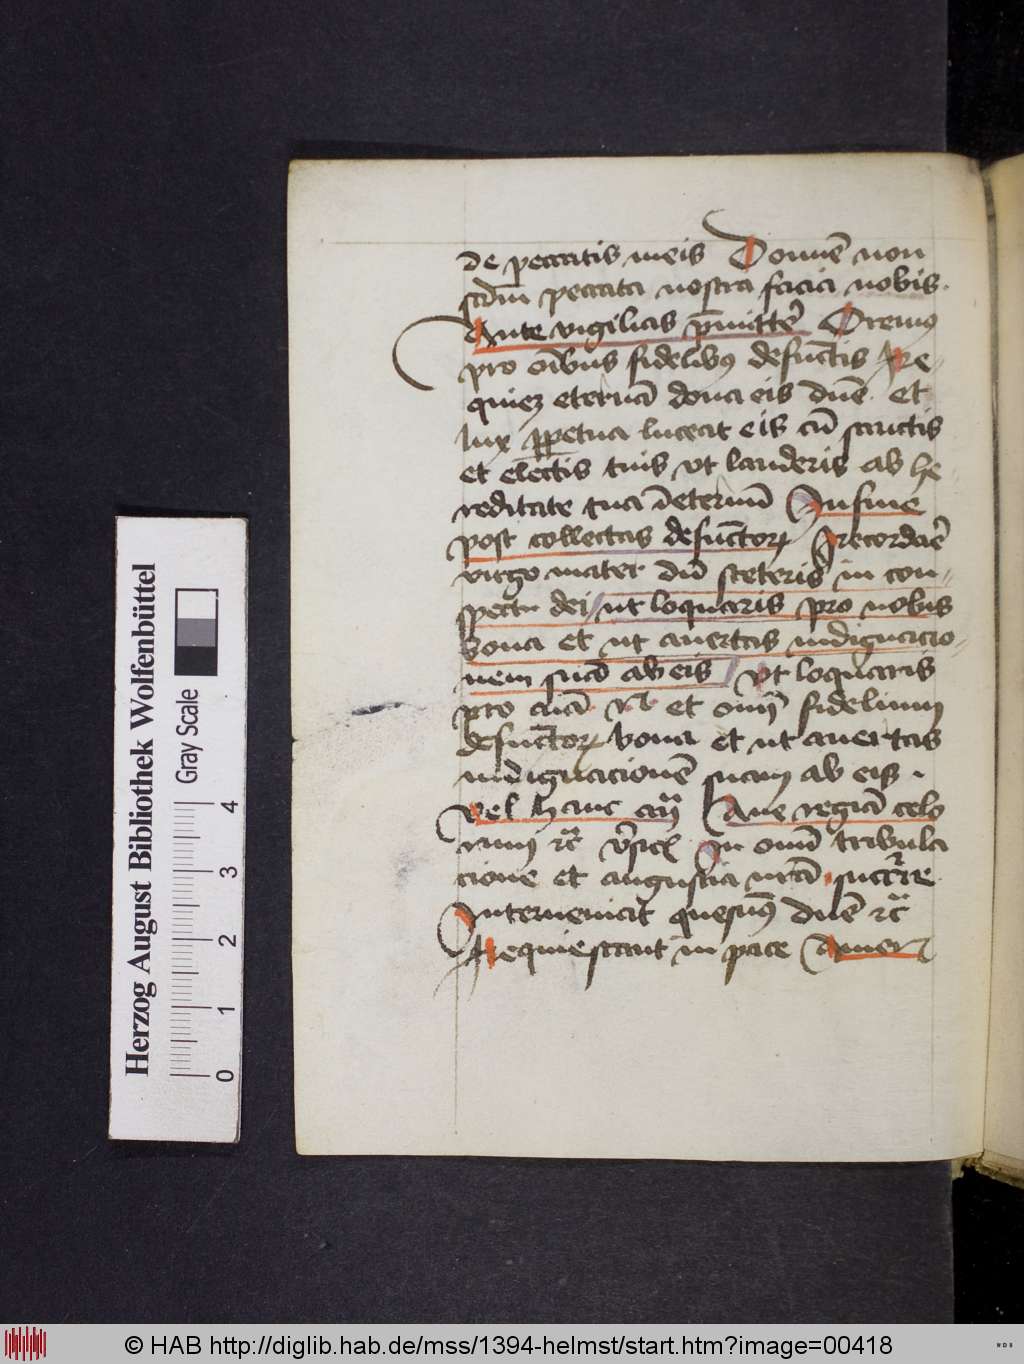 de peccatis meis Domine non
scdm peccata nostra facia nobis.
Ante vigilias pmittet Oremus
pro oibus fidelibus defunctis Re-
quiez eternā dona eis dnē et
lux ppetua luceat eis cū sanctis
et electis tuis vt lauderis ab he-
reditate tua ī eternū In fine
post collectas defunctorꝝ Recordaē
virgo mater dū steteris in con-
spectu dei ut loquaris pro nobis
bona et ut avertas indignacio-
nem suā ab eis Vt loquaris
pro et omī fidelium
defunctorꝝ bona et ut avertas
indignacionē suam ab eis.
Vel hanc Ave regiā celo
rum ꝛc In omī tribula
cione et angustia succre
Interveniat quesumꝰ dnē ꝛc
Requiescant in pace Amen
Herzog August Bibliothek Wolfenbüttel
Gray Scale
0 1 2 3 4
© HAB http://diglib.hab.de/mss/1394-helmst/start.htm?image=00418